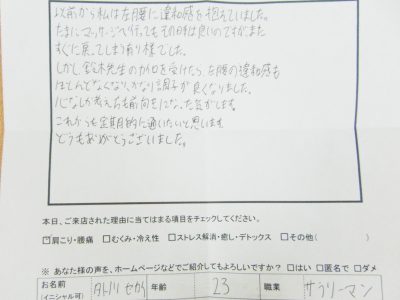 以前から私は左腰に違和感を抱えていました。
たまにマッサージへ行ってもその日は良いのですが、また
すぐに戻ってしまう有り様でした。
しかし、鈴木先生のカイロを受けたら、左腰の違和感も
ほとんどなくなり、かなり調子が良くなりました。
心なしか考え方も前向きになった気がします。
これからも定期的に通いたいと思います。
どうもありがとうございました。
本日、ご来店された理由に当てはまる項目をチェックしてください。
☑肩こり・腰痛 □むくみ・冷え性 □ストレス解消・癒し・デトックス □その他(
※ あなた様の声を、ホームページなどでご紹介してもよろしいですか？ □はい □匿名で □ダメ
お名前 年齢 23 職業 サラリーマン
(イニシャル可)